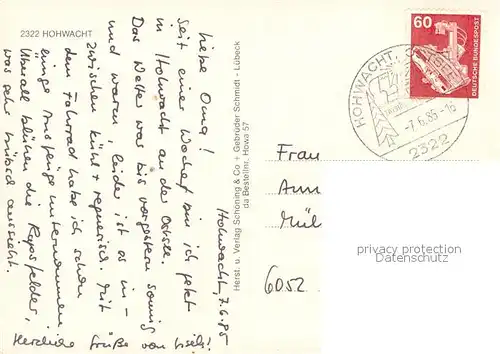 2322 HOHWACHT
Hohwacht, 7.6.85
Liebe Oma!
Seit einer Woche bin ich jetzt
in Hohwacht an der Ostsee.
Das Wetter war bis vorgestern sonnig
und warm, leider ist es in-
zwischen kühl + regnerisch. Mit
dem Fahrrad habe ich schon
einige Ausflüge unternommen.
Überall blühen die Rapsfelder,
was sehr hübsch aussieht.
Herzliche Grüße von
Herst. u. Verlag Schöning & Co + Gebrüder Schmidt - Lübeck
da Bestellnr. Howa 57
60
DEUTSCHE BUNDESPOST
HOHWACHT
-7.6.85-16
2322
Frau
6052
privacy protection
Datenschutz